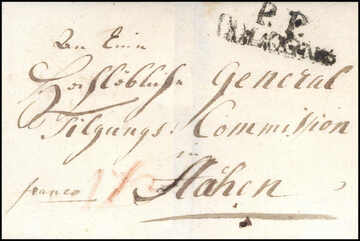 P.P.
An Eine
Hochlöbliche General
Tilgungs Commission
in
franco